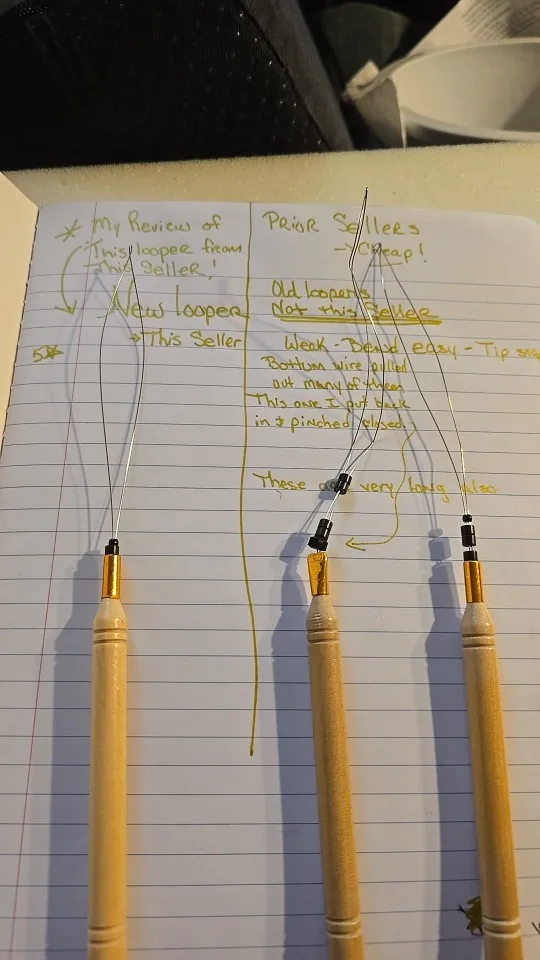 * My Review of
This looper from
This Seller!
New looper
→ This Seller
5☆
PRIOR Sellers
→ Cheap!
Old loopers
Not this Seller
Weak - Bend easy - Tip
Bottom wire pulled
out many of them
This one I put back
in & pinched closed.
These are very long also